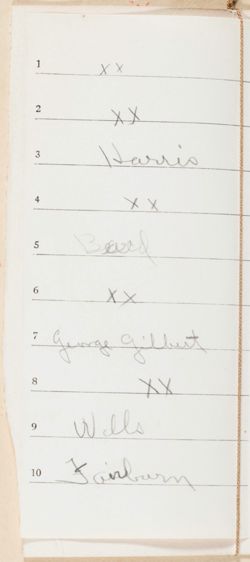 1 xx
2 xx
3 Harris
4 xx
5 Beard
6 xx
7 George Gilbert
8 xx
9 Wells
10 Fairburn